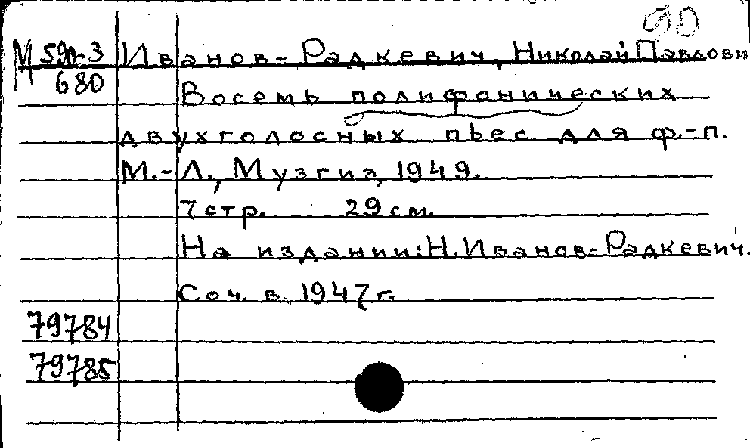 90
М 59п-3 Иванов-Радкевич, Николай Павлови
680
Восемь полифанических
двухголосных пьес для ф.-п.
М.-Л., Музгиз, 1949.
7 стр. 29 см.
На издании: Н. Иванов-Радкевич.
Соч. в 1947 г.
79784
79785